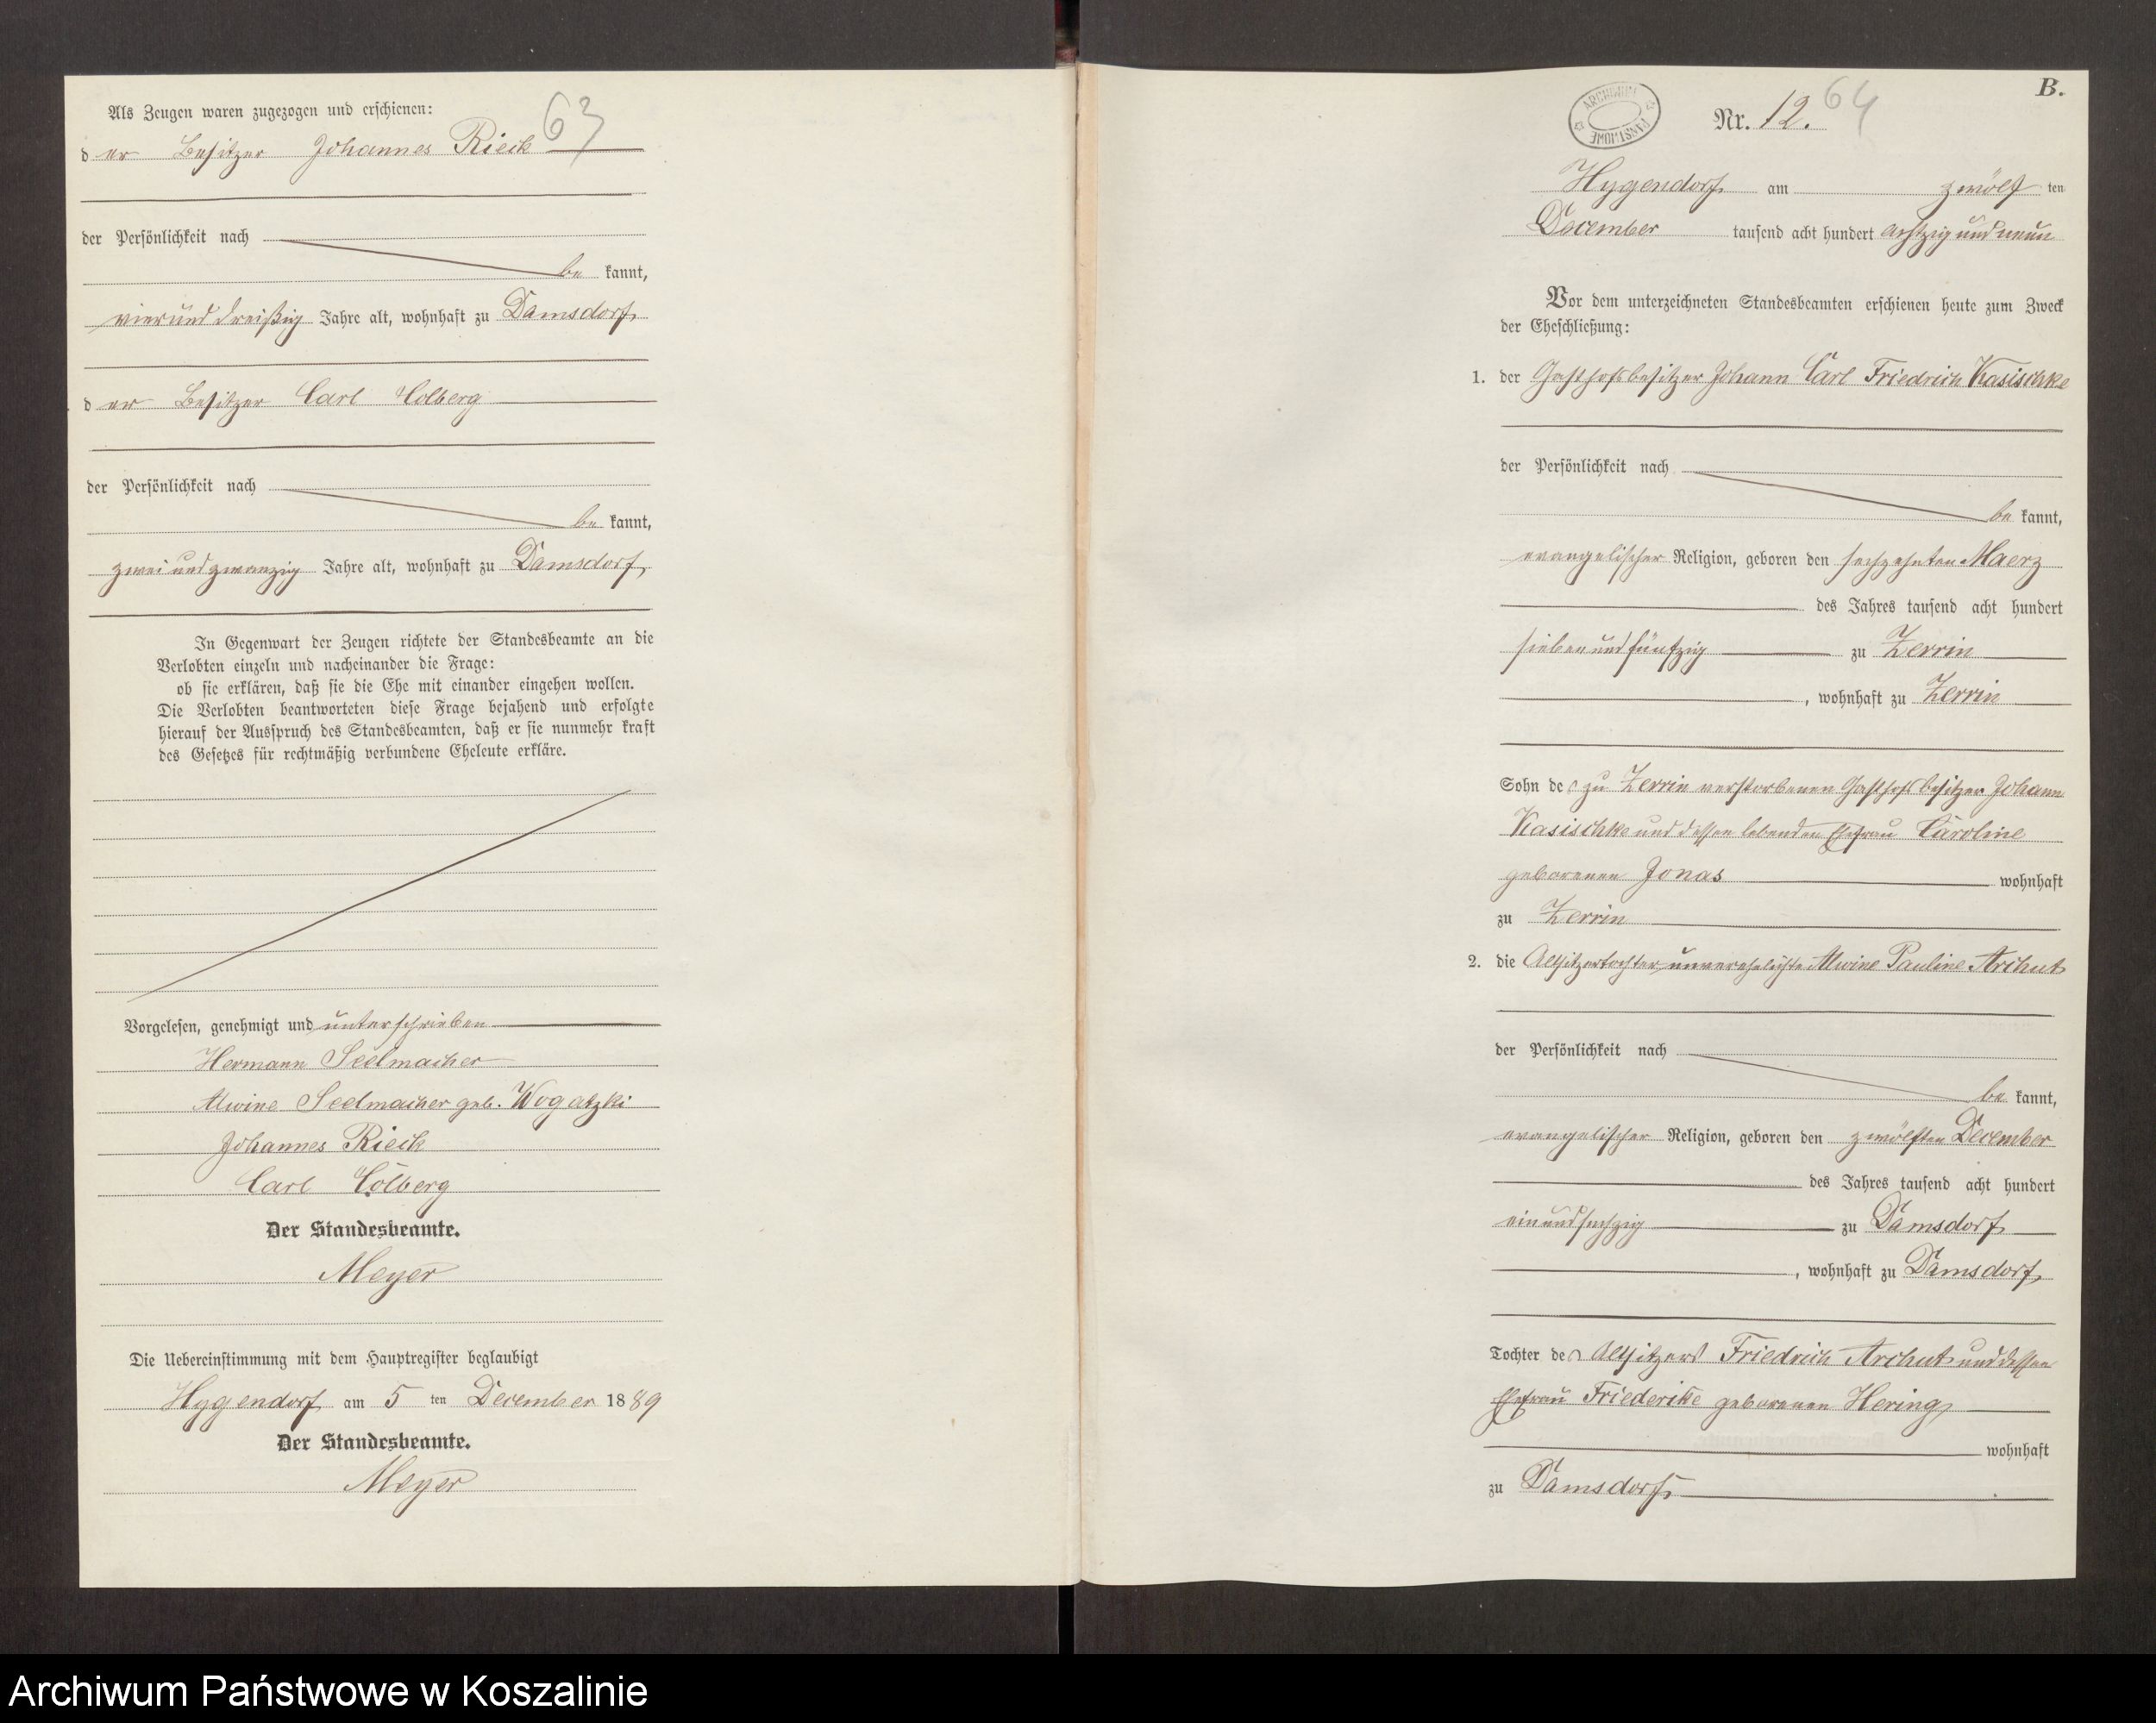 Als Zeugen waren zugezogen und erschienen:
63
der Besitzer Johannes Rieck
der Persönlichkeit nach
be kannt,
vierunddreißig Jahre alt, wohnhaft zu Damsdorf,
der Besitzer Carl Colberg
der Persönlichkeit nach
be kannt,
zweiundzwanzig Jahre alt, wohnhaft zu Damsdorf,
In Gegenwart der Zeugen richtete der Standesbeamte an die
Verlobten einzeln und nacheinander die Frage:
ob sie erklären, daß sie die Ehe mit einander eingehen wollen.
Die Verlobten beantworteten diese Frage bejahend und erfolgte
hierauf der Ausspruch des Standesbeamten, daß er sie nunmehr kraft
des Gesetzes für rechtmäßig verbundene Eheleute erkläre.
Vorgelesen, genehmigt und unterschrieben
Hermann Seelmacher
Alwine Seelmacher geb. Wogatzki
Johannes Rieck
Carl Colberg
Der Standesbeamte.
Meyer
Die Uebereinstimmung mit dem Hauptregister beglaubigt
Hygendorf am 5 ten December 1889
Der Standesbeamte.
Meyer
B.
ARCHIWUM PAŃSTWOWE
Nr. 12.
64
Hygendorf am zwölf ten
December tausend acht hundert achtzig und neun
Vor dem unterzeichneten Standesbeamten erschienen heute zum Zweck
der Eheschließung:
1. der Gasthofsbesitzer Johann Carl Friedrich Kasischke
der Persönlichkeit nach
be kannt,
evangelischer Religion, geboren den sechzehnten Maerz
des Jahres tausend acht hundert
sieben und fünfzig zu Zerrin
, wohnhaft zu Zerrin
Sohn des zu Zerrin verstorbenen Gasthofsbesitzer Johann
Kasischke und dessen lebenden Ehefrau Caroline
geborenen Jonas wohnhaft
zu Zerrin
2. die unverehelichte Alwine Pauline Archut
der Persönlichkeit nach
be kannt,
evangelischer Religion, geboren den zwölften December
des Jahres tausend acht hundert
einundsechzig zu Damsdorf
, wohnhaft zu Damsdorf,
Tochter des Friedrich Archut und dessen
Ehefrau Friederike geborenen Hering,
wohnhaft
zu Damsdorf,
Archiwum Państwowe w Koszalinie